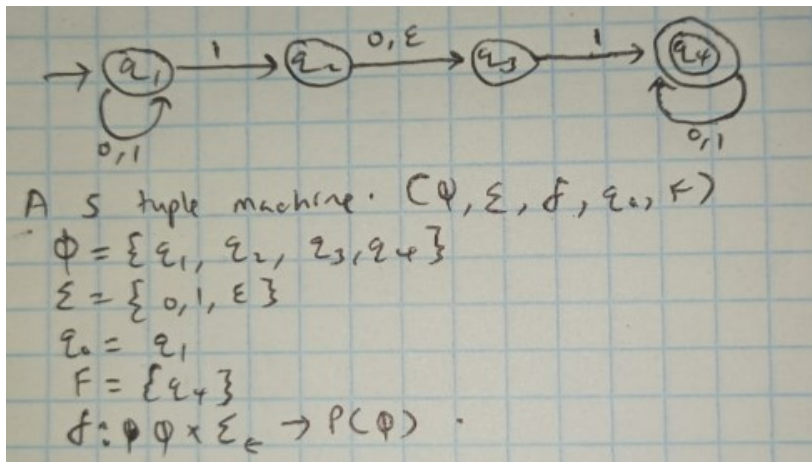 1 0, ε 1
→ q₁ q₂ q₃ q₄
0,1 0,1
A 5 tuple machine. (Q, Σ, δ, q₀, F)
Q = {q₁, q₂, q₃, q₄}
Σ = {0, 1, ε}
q₀ = q₁
F = {q₄}
δ: Q × Σε → P(Q) .